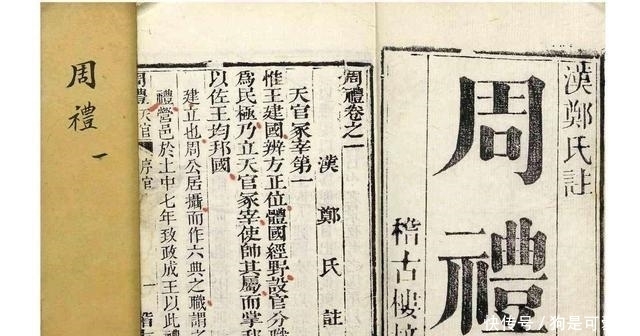 漢鄭氏註
周禮
稽古樓
周禮卷之一
漢鄭氏註
天官冢宰第一
惟王建國辨方正位體國經野設官分職
爲民極乃立天官冢宰使帥其屬而掌
以佐王均邦國
建立也周公居攝而作六典之職謂之
禮營邑於土中七年致政成王以此
周禮 天官 序官 一
周禮 一
快传号/狗是可